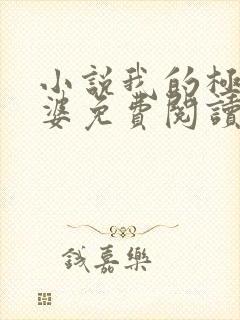 小説我的極
婆免費閱讀
錢嘉樂